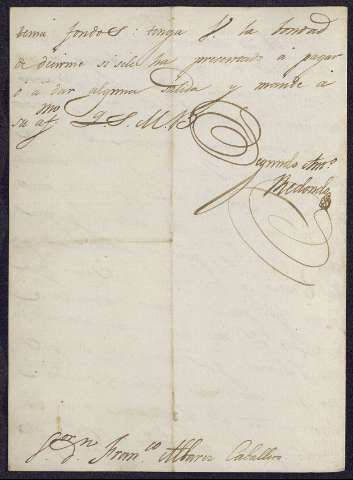 tenia fondos: tenga V. la bondad
de decirme si se le ha presentado á pagar
ó a dar alguna salida y mande á
su at.^mo Q. S. M. B.
Segundo Ant.º
Redondo
S.or D.n Fran.co Alvarez Caballero